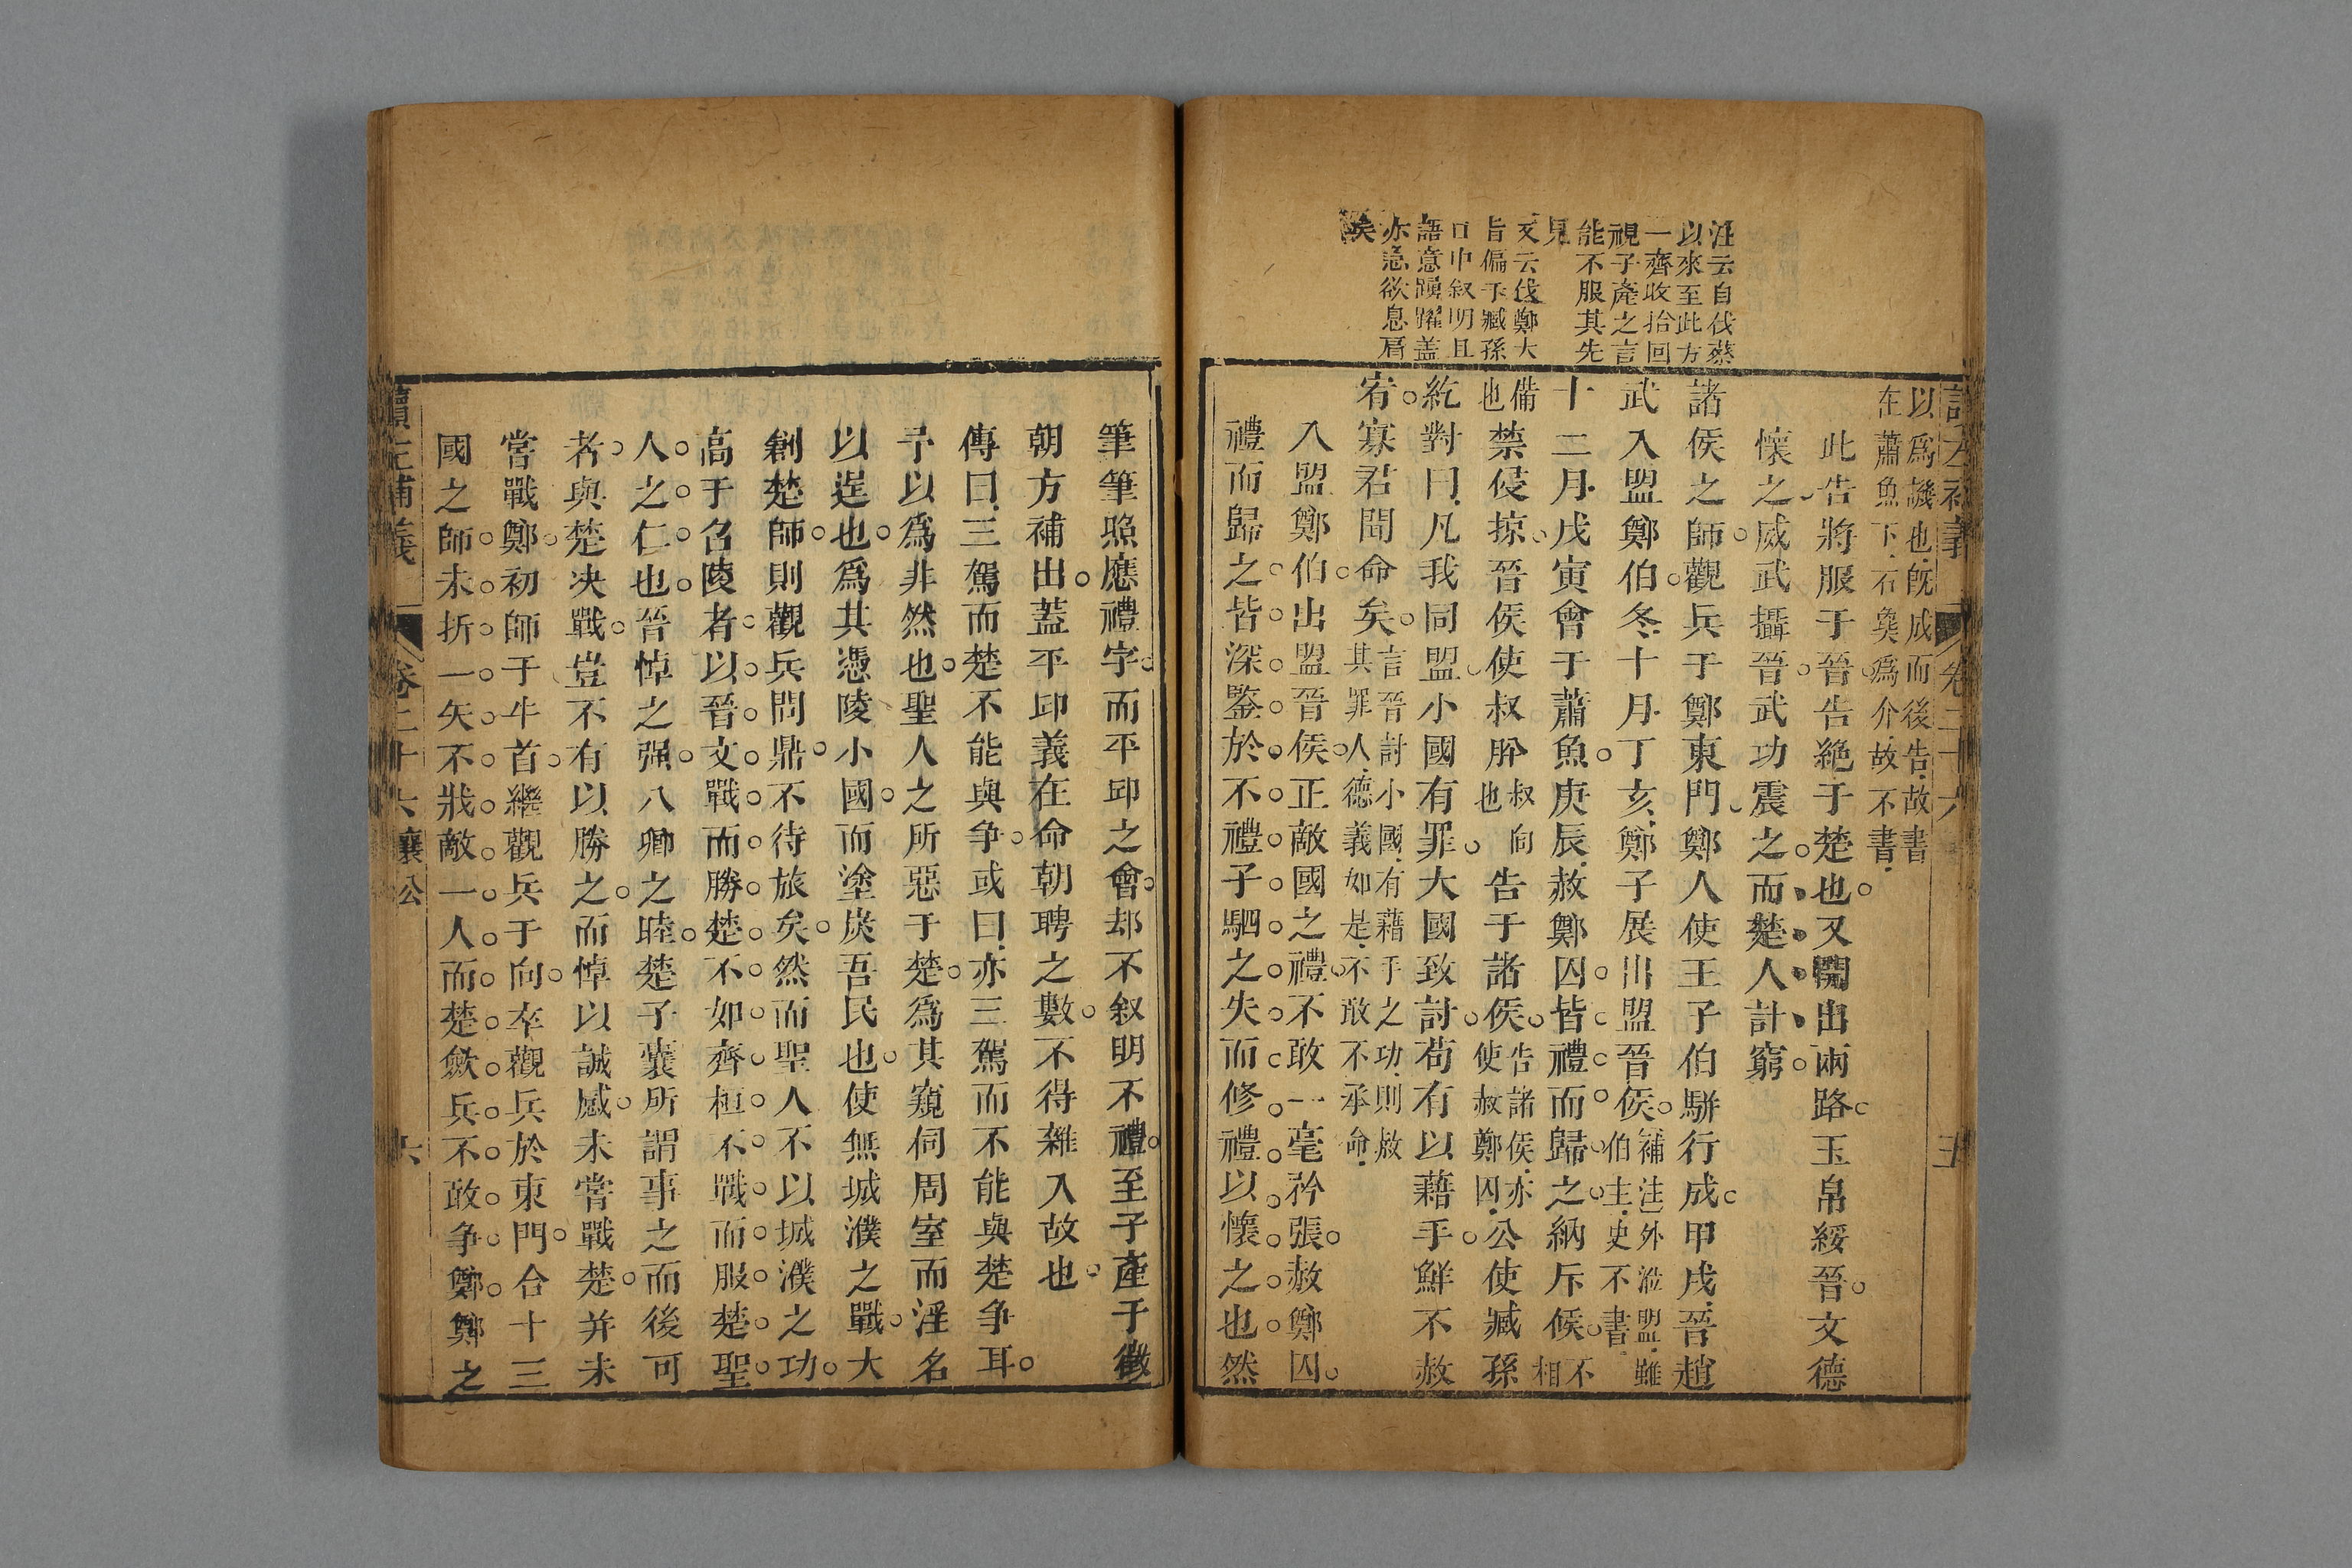 汪云自伐蔡
以來至此方
一齊收拾回
視子產之言
能不服其先
見
又云伐鄭大
旨偏于臧孫
口中叙明且
語意踴躍蓋
亦急欲息肩
矣
以爲譏也旣成而後告故書
在蕭魚下石㚟爲介故不書
此告將服于晉告絶于楚也又開出兩路玉帛綏晉文德
懷之威武攝晉武功震之而楚人計窮
諸侯之師觀兵于鄭東門鄭人使王子伯駢行成甲戌晉趙
武入盟鄭伯冬十月丁亥鄭子展出盟晉侯補注外涖盟雖
伯主史不書
十二月戊寅會于蕭魚庚辰赦鄭囚皆禮而歸之納斥候不相
備也禁侵掠晉侯使叔肸叔向也告于諸侯告諸侯亦使赦鄭囚公使臧孫
紇對曰凡我同盟小國有罪大國致討苟有以藉手鮮不赦
宥寡君聞命矣言晉討小國有藉手之功則赦其罪人德義如是不敢不承命
入盟鄭伯出盟晉侯正敵國之禮不敢一毫矜張赦鄭囚
禮而歸之皆深鑒於不禮子駟之失而修禮以懷之也然
讀左補義 卷二十六 五
筆筆照應禮字而平邱之會却不叙明不禮至子產于徵
朝方補出蓋平邱義在命朝聘之數不得雜入故也
傳曰三駕而楚不能與争或曰亦三駕而不能與楚争耳
予以爲非然也聖人之所惡于楚爲其窺伺周室而淫名
以逞也爲其憑陵小國而塗炭吾民也使無城濮之戰大
創楚師則觀兵問鼎不待旅矣然而聖人不以城濮之功
高于召陵者以晉文戰而勝楚不如齊桓不戰而服楚聖
人之仁也晉悼之强八卿之睦楚子囊所謂事之而後可
者與楚决戰豈不有以勝之而悼以誠感未嘗戰楚并未
嘗戰鄭初師于牛首繼觀兵于向卒觀兵於東門合十三
國之師未折一矢不戕敵一人而楚斂兵不敢争鄭鄭之
讀左補義 卷二十六 襄公 六